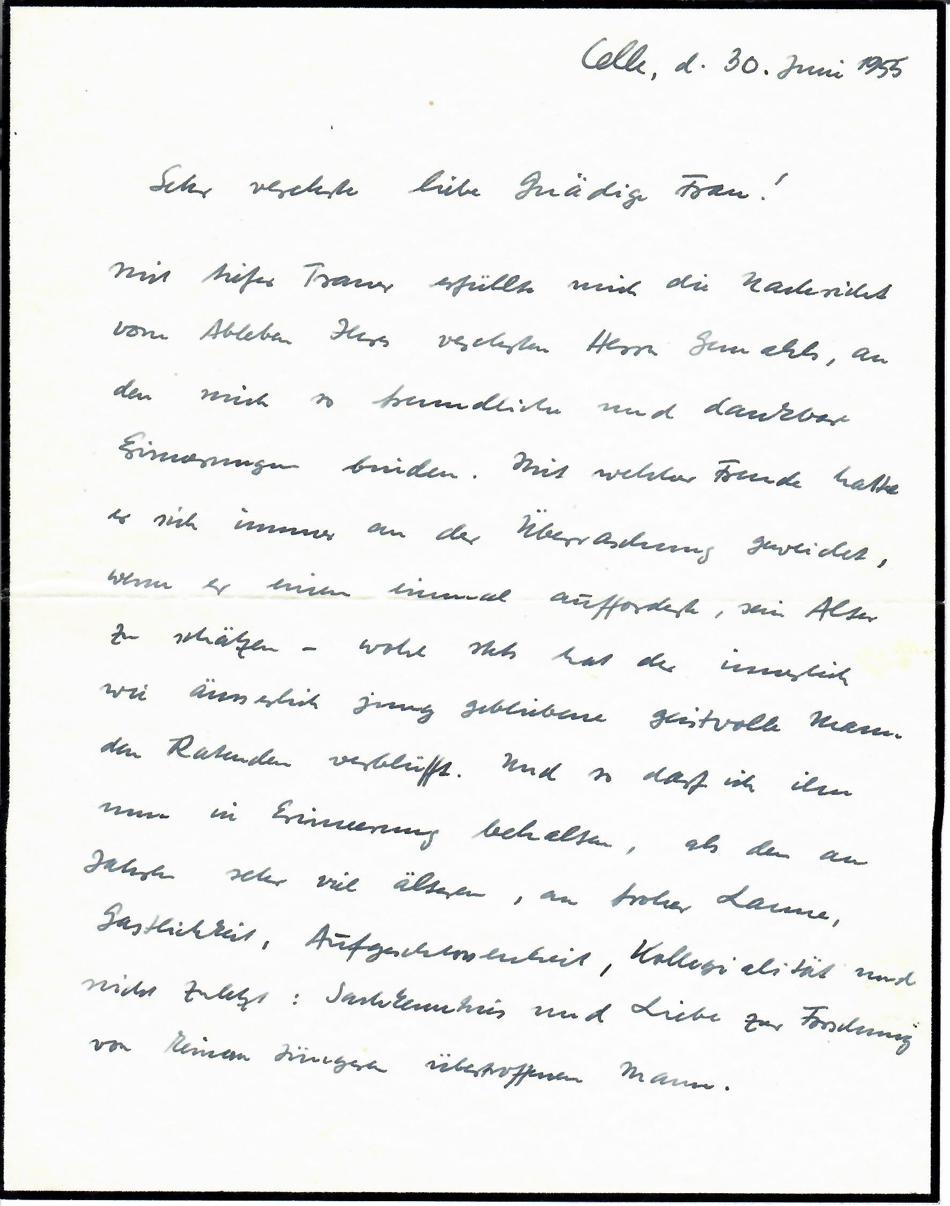 Celle, d. 30. Juni 1955
Sehr verehrte liebe Gnädige Frau!
Mit tiefer Trauer erfüllte mich die Nachricht
vom Ableben Ihres verehrten Herrn Gemahls, an
den mich so freundliche und dankbare
Erinnerungen binden. Mit welcher Freude hatte
er sich immer an der Überraschung geweidet,
wenn er einen einmal aufforderte, sein Alter
zu schätzen – wohl stets hat der innerlich
wie äusserlich jung gebliebene geistvolle Mann
den Ratenden verblüfft. Und so darf ich ihn
nun in Erinnerung behalten, als den an
Jahren sehr viel älteren, an froher Laune,
Gastlichkeit, Aufgeschlossenheit, Kollegialität und
nicht zuletzt: Sachkenntnis und Liebe zur Forschung
von keinem Jüngeren übertroffenen Mann.